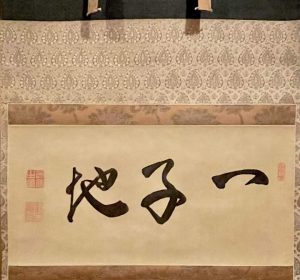 一子地